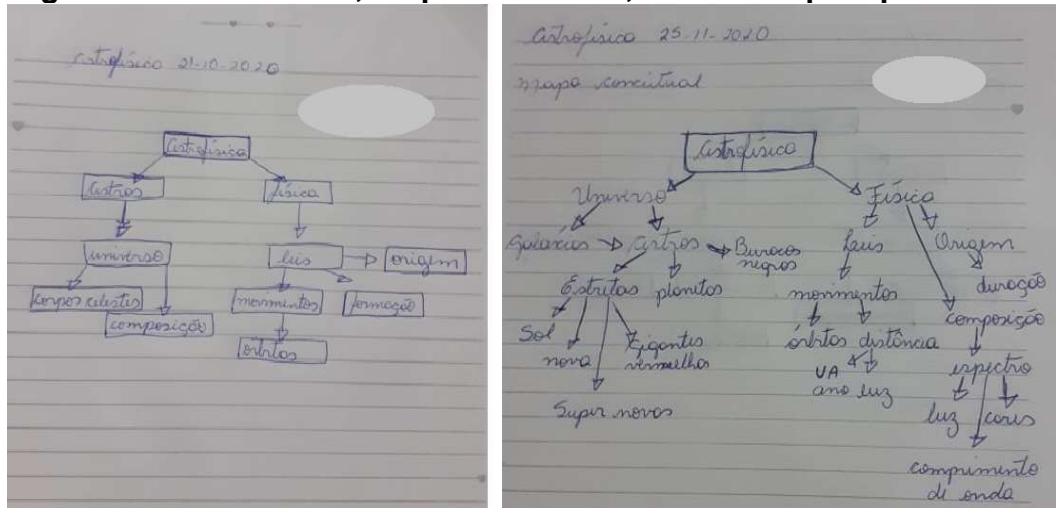 Astrofísica 21-10-2020
Astrofísica
Astros física
universo leis origem
corpos celestes movimentos formação
composição
órbitas
Astrofísica 25-11-2020
Mapa conceitual
Astrofísica
Universo Física
Galáxias Astros Buracos negros Leis Origem
Estrelas planetas movimentos duração
Sol nova Gigantes vermelhas órbitas distância composição
UA ano luz espectro
Super novas luz cores
comprimento
de onda